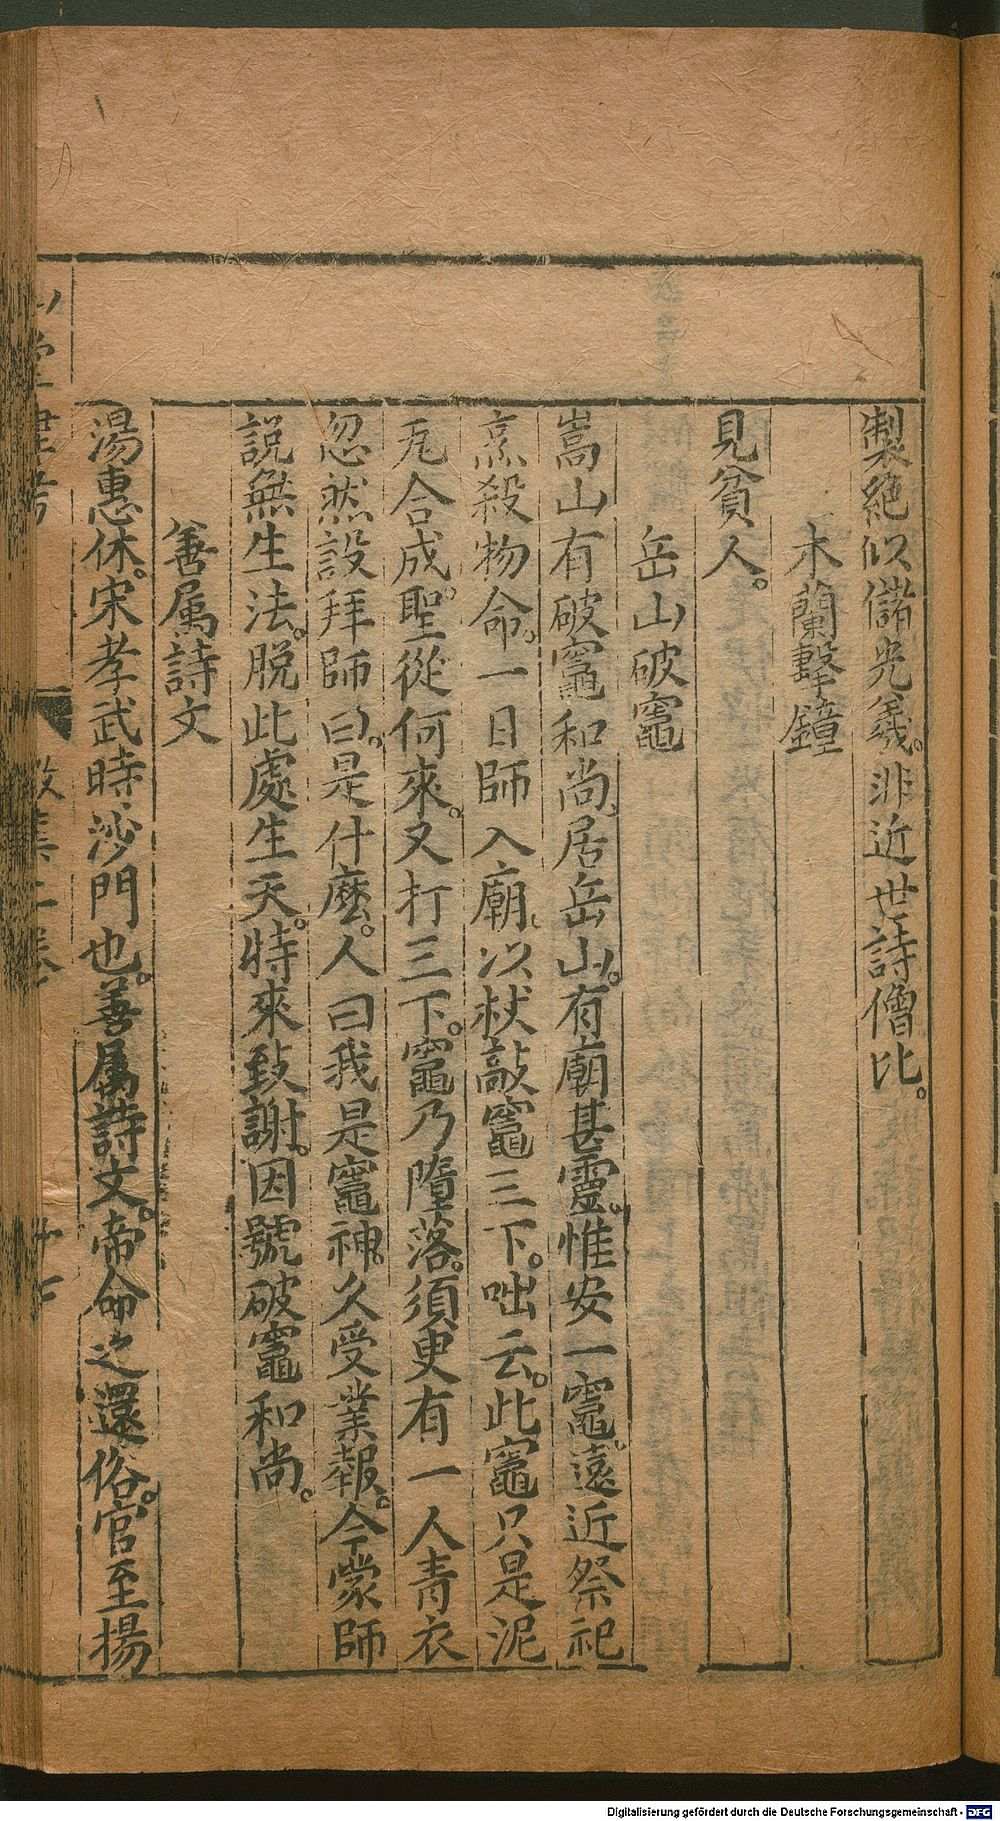 製絶似儲光羲。非近世詩僧比。
木蘭擊鐘
見貧人。
岳山破竈
嵩山有破竈和尚。居岳山。有廟甚靈。惟安一竈。遠近祭祀
烹殺物命。一日師入廟。以杖敲竈三下。咄云。此竈只是泥
瓦合成。聖從何來。又打三下。竈乃墮落。須臾有一人青衣
忽然設拜師曰。是什麽。人曰我是竈神。久受業報。今蒙師
説無生法。脱此處生天。特來致謝。因號破竈和尚。
善属詩文
湯惠休。宋孝武時沙門也。善屬詩文。帝命之還俗。官至揚
Digitalisierung gefördert durch die Deutsche Forschungsgemeinschaft - DFG